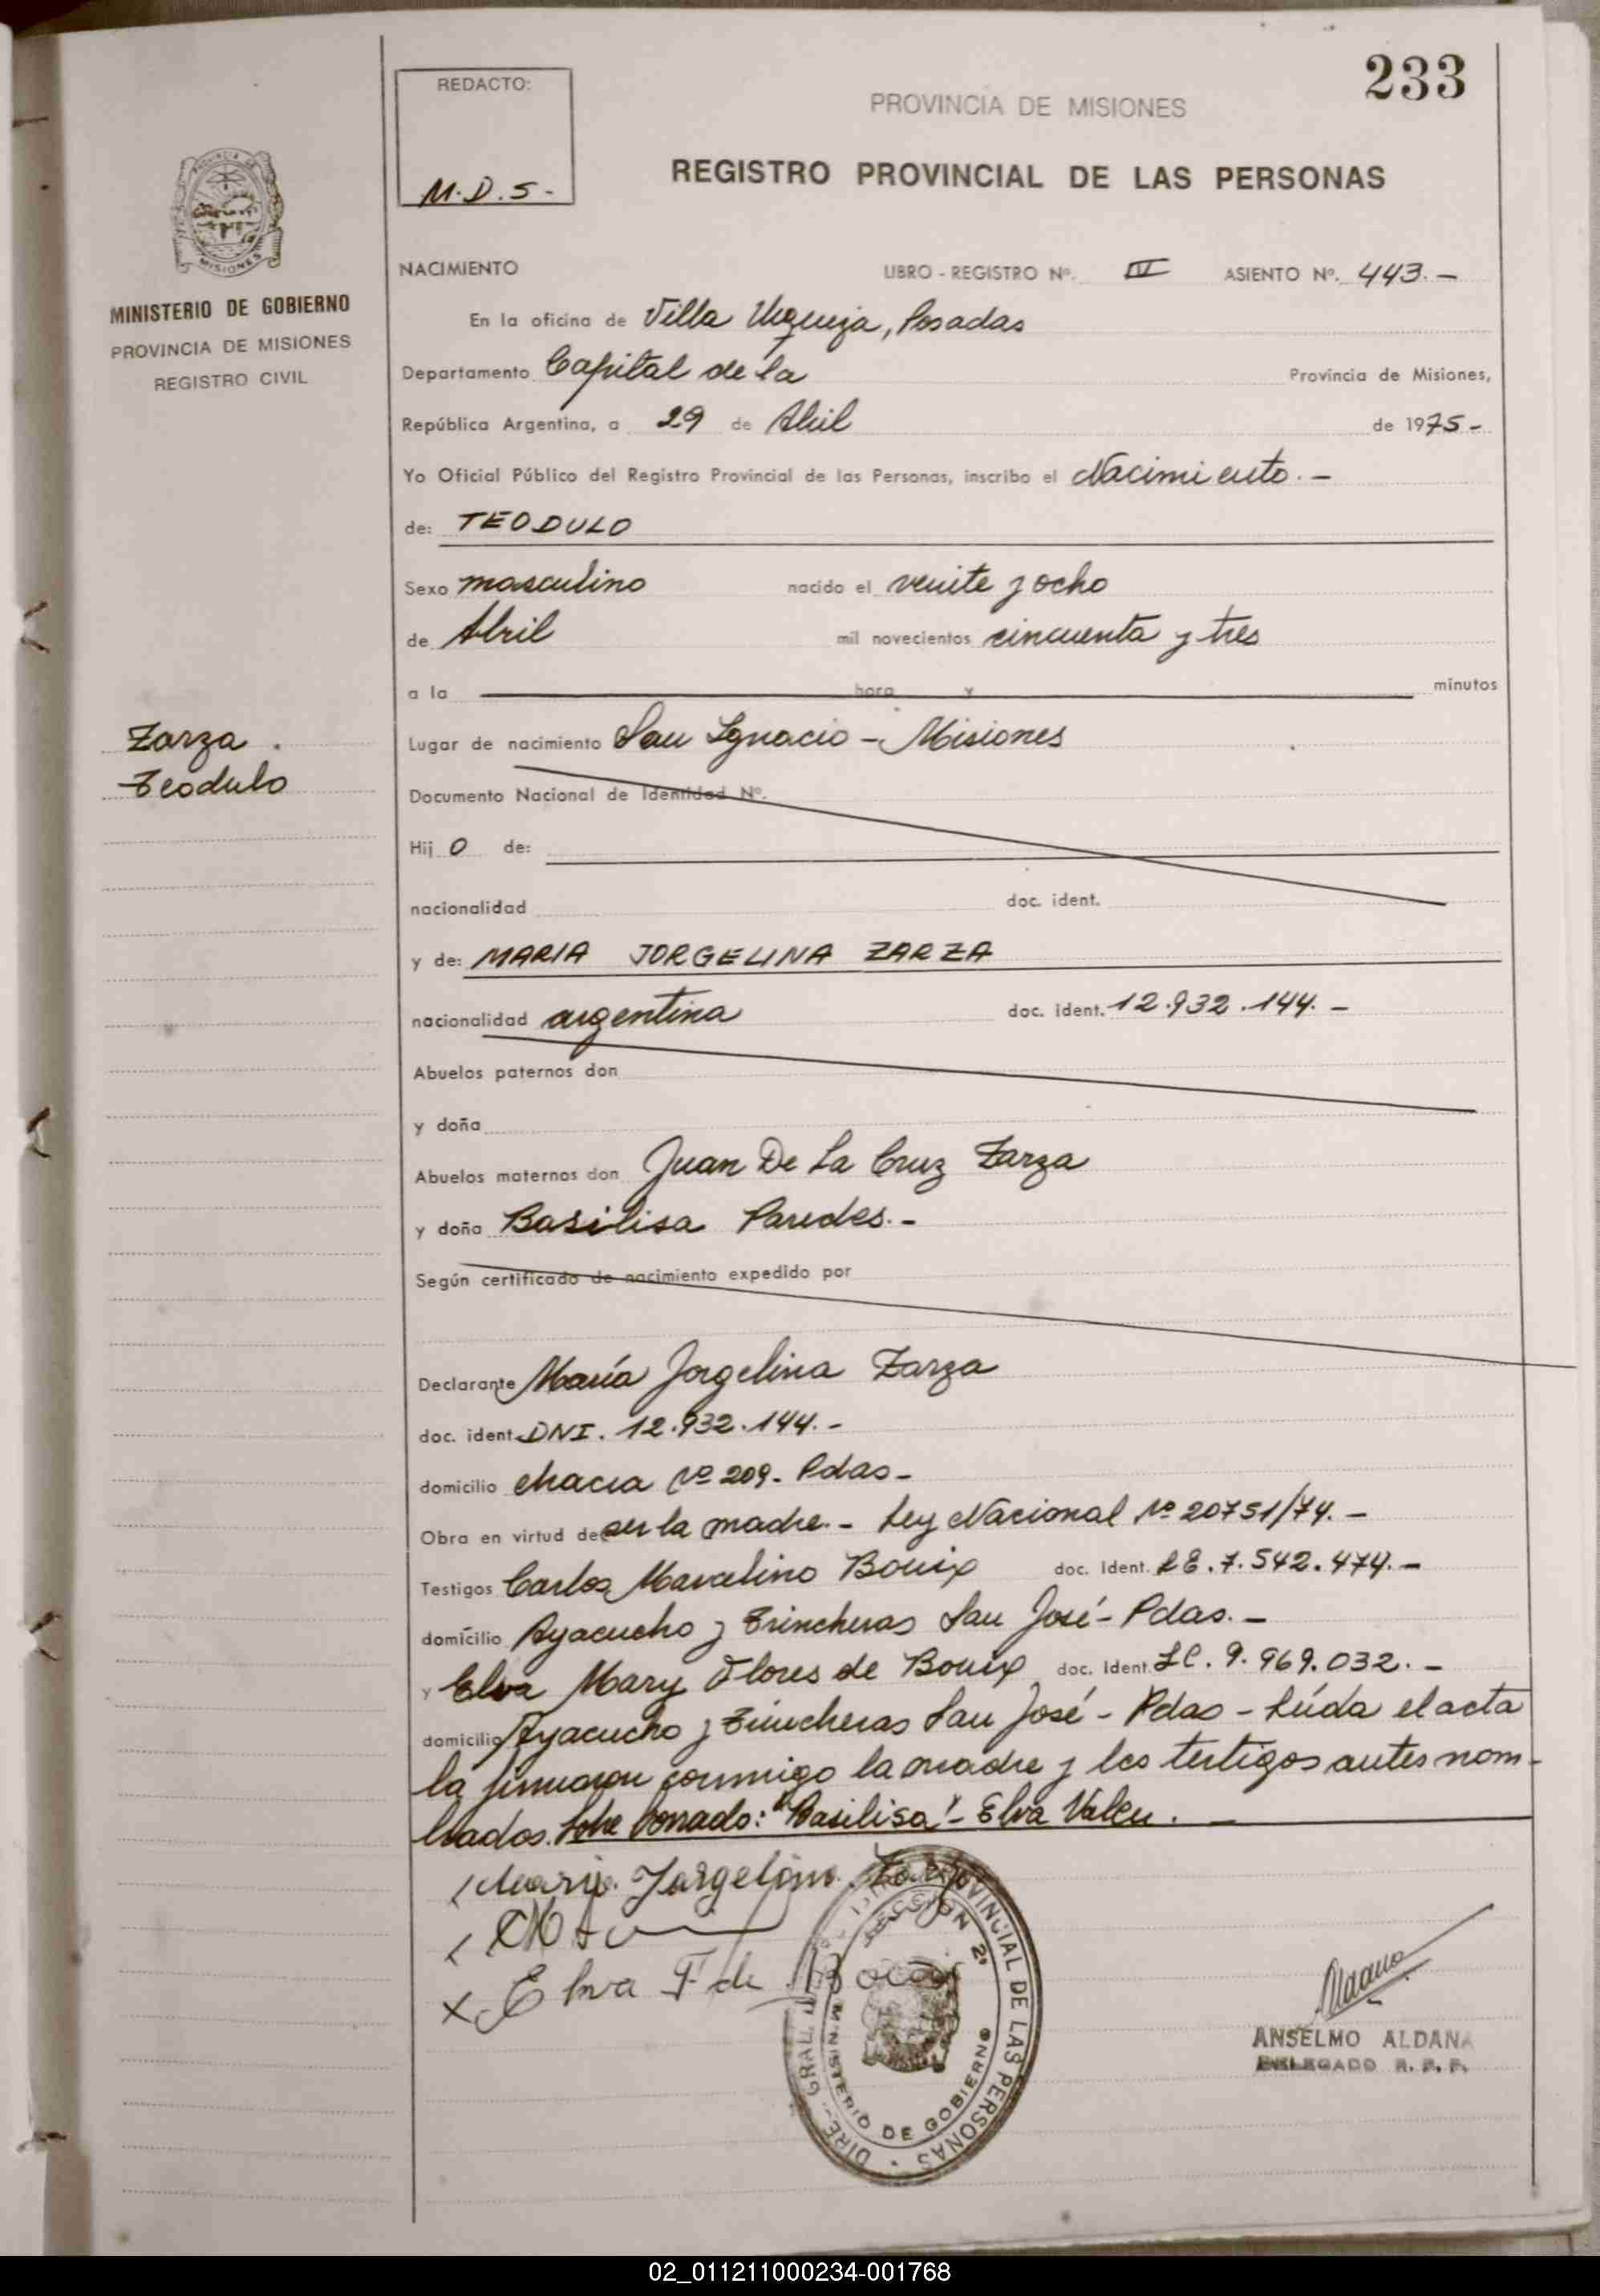 233
REDACTO:
M.D.S-
PROVINCIA DE MISIONES
REGISTRO PROVINCIAL DE LAS PERSONAS
MISIONES
MINISTERIO DE GOBIERNO
PROVINCIA DE MISIONES
REGISTRO CIVIL
NACIMIENTO LIBRO - REGISTRO Nº. IV ASIENTO Nº. 443.-
En la oficina de Villa Urquiza, Posadas
Departamento Capital de la Provincia de Misiones,
República Argentina, a 29 de Abril de 1975-
Yo Oficial Público del Registro Provincial de las Personas, inscribo el Nacimiento.-
de: TEODULO
Sexo masculino nacido el veinte y ocho
de Abril mil novecientos cincuenta y tres
a la hora y minutos
Zarza
Teodulo
Lugar de nacimiento San Ignacio - Misiones
Documento Nacional de Identidad Nº.
Hij o de:
nacionalidad doc. ident.
y de: MARIA JORGELINA ZARZA
nacionalidad argentina doc. ident. 12.932.144.-
Abuelos paternos don
y doña
Abuelos maternos don Juan De La Cruz Zarza
y doña Basilisa Paredes.-
Según certificado de nacimiento expedido por
Declarante María Jorgelina Zarza
doc. ident. DNI. 12.932.144.-
domicilio chacra Nº 209- Pdas-
Obra en virtud de ser la madre.- Ley Nacional Nº 20751/74.-
Testigos Carlos Marcelino Bouix doc. Ident. LE.7.542.474.-
domicilio Ayacucho y Trincheras San José- Pdas.-
y Elva Mary Flores de Bouix doc. Ident. LC. 9.969.032.-
domicilio Ayacucho y Trincheras San José - Pdas - Leída el acta
la firmaron conmigo la madre y los testigos antes nom-
brados. Sobre borrado: "Basilisa"- Elva Valen.-
Maria Jorgelina Zarza
Elva F de
DIRE GRAL PROVINCIAL DE LAS PERSONAS
SECCION 2ª
MINISTERIO DE GOBIERNO
Aldana
ANSELMO ALDANA
DELEGADO R. P. P.
02_011211000234-001768